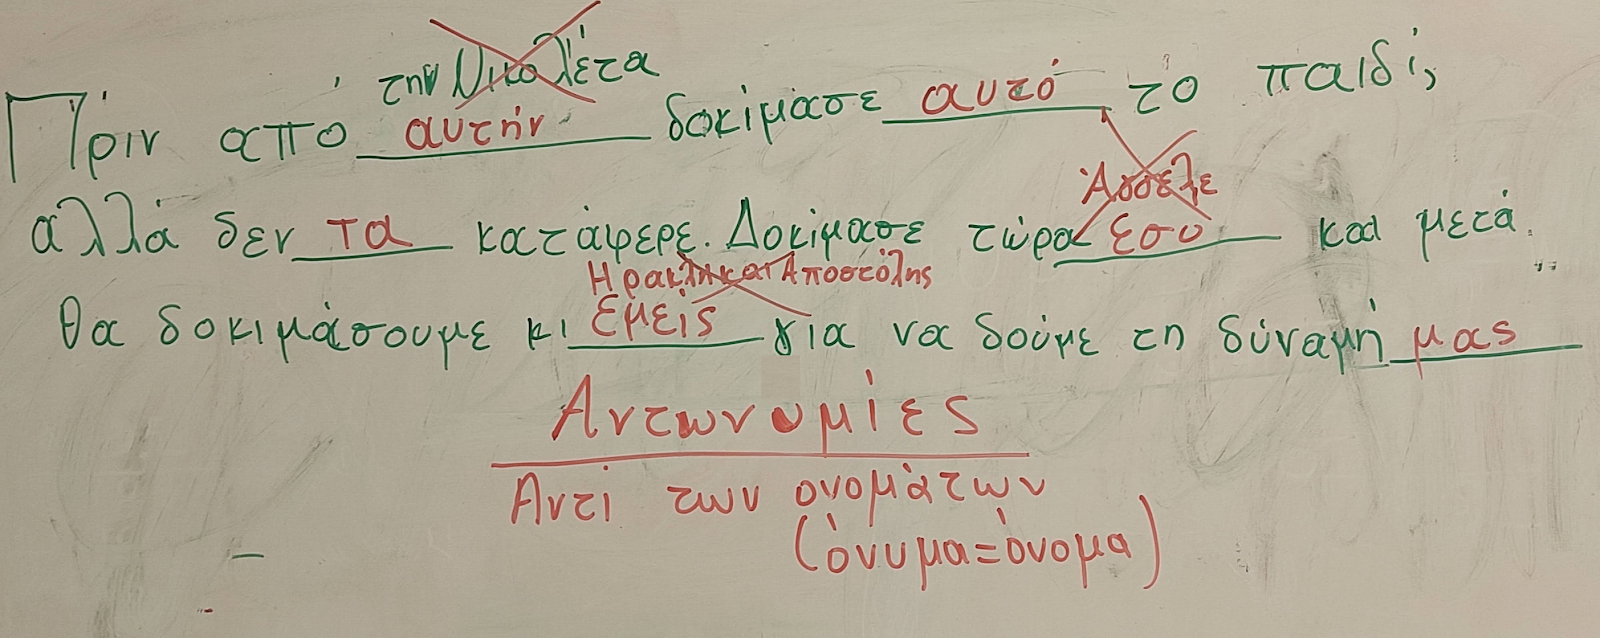 την Νικολέτα
Πριν από αυτήν δοκίμασε αυτό το παιδί,
Άγγελε
αλλά δεν τα κατάφερε. Δοκίμασε τώρα εσύ και μετά
Ηρακλής και Αποστόλης
θα δοκιμάσουμε κι εμείς για να δούμε τη δύναμή μας
Αντωνυμίες
Αντί των ονομάτων
(όνυμα=όνομα)